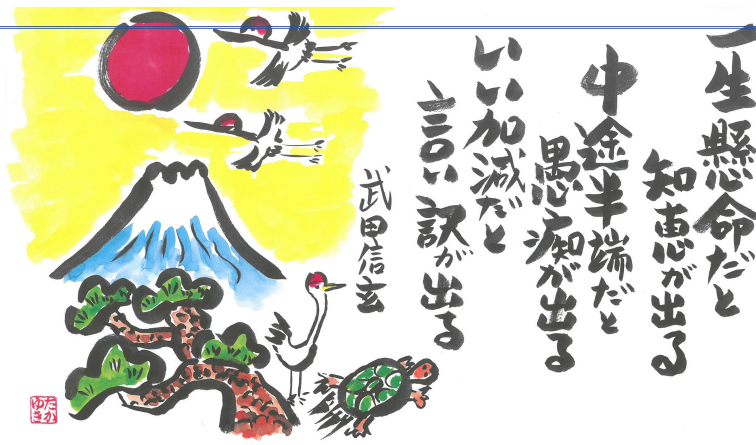 一生懸命だと
知恵が出る
中途半端だと
愚痴が出る
いい加減だと
言い訳が出る
武田信玄
たか
ゆき